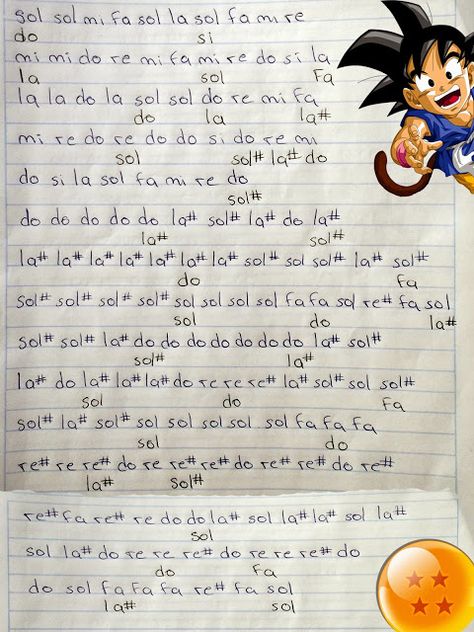 sol sol mi fa sol la sol fa mi re
do si
mi mi do re mi fa mi re do si la
la sol fa
la la do la sol sol do re mi fa
do la la#
mi re do re do do si do re mi
sol sol# la# do
do si la sol fa mi re do
sol#
do do do do do la# sol# la# do la#
la# sol#
la# la# la# la# la# la# la# sol# sol sol# la# sol#
do fa
sol# sol# sol# sol# sol sol sol sol fa fa sol re# fa sol
sol do la#
sol# sol# la# do do do do do do do la# sol#
sol# la#
la# do la# la# la# do re re re# la# sol# sol sol#
sol do fa
sol# la# sol# sol sol sol sol sol fa fa fa
sol do
re# re re# do re re# re# do re# re# do re#
la# sol#
re# fa re# re do do la# sol la# la# sol la#
sol
sol la# do re re re# do re re re# do
do fa
do sol fa fa fa re# fa sol
la# sol